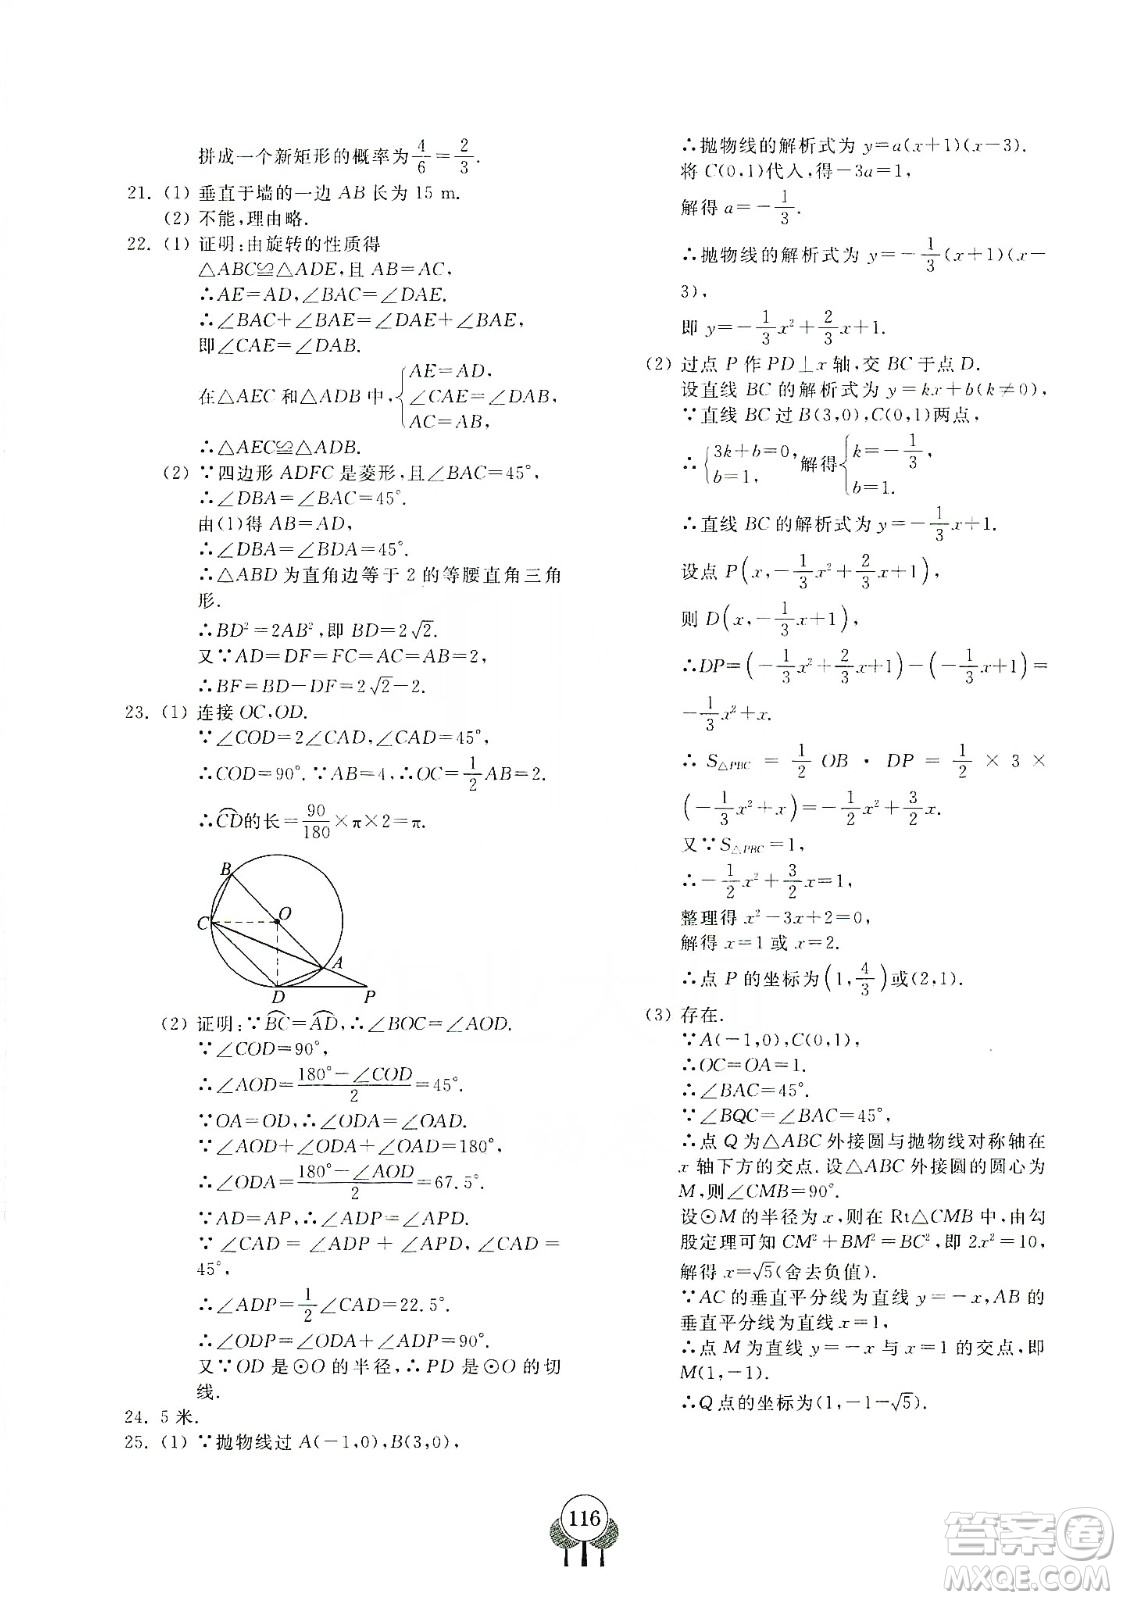 拼成一个新矩形的概率为4/6=2/3.
21. (1) 垂直于墙的一边 AB 长为 15 m.
(2) 不能,理由略.
22. (1) 证明:由旋转的性质得
△ABC≌△ADE,且 AB=AC,
∴AE=AD,∠BAC=∠DAE.
∴∠BAC+∠BAE=∠DAE+∠BAE,
即∠CAE=∠DAB.
在△AEC 和△ADB 中,{AE=AD,
∠CAE=∠DAB,
AC=AB,
∴△AEC≌△ADB.
(2) ∵四边形 ADFC 是菱形,且∠BAC=45°,
∴∠DBA=∠BAC=45°.
由(1)得 AB=AD,
∴∠DBA=∠BDA=45°.
∴△ABD 为直角边等于 2 的等腰直角三角
形.
∴BD²=2AB²,即 BD=2√2.
又∵AD=DF=FC=AC=AB=2,
∴BF=BD-DF=2√2-2.
23. (1) 连接 OC,OD.
∵∠COD=2∠CAD,∠CAD=45°,
∴∠COD=90°.∵AB=4,∴OC=1/2AB=2.
∴⌒CD的长=90/180×π×2=π.
B
C
O
A
D
P
(2) 证明:∵⌒BC=⌒AD,∴∠BOC=∠AOD.
∵∠COD=90°,
∴∠AOD=(180°-∠COD)/2=45°.
∵OA=OD,∴∠ODA=∠OAD.
∵∠AOD+∠ODA+∠OAD=180°,
∴∠ODA=(180°-∠AOD)/2=67.5°.
∵AD=AP,∴∠ADP=∠APD.
∵∠CAD=∠ADP+∠APD,∠CAD=
45°,
∴∠ADP=1/2∠CAD=22.5°.
∴∠ODP=∠ODA+∠ADP=90°.
又∵OD 是⊙O 的半径,∴PD 是⊙O 的切
线.
24. 5 米.
25. (1) ∵抛物线过 A(-1,0),B(3,0),
∴抛物线的解析式为 y=a(x+1)(x-3).
将 C(0,1)代入,得-3a=1,
解得 a=-1/3.
∴抛物线的解析式为 y=-1/3(x+1)(x-
3),
即 y=-1/3x²+2/3x+1.
(2) 过点 P 作 PD⊥x 轴,交 BC 于点 D.
设直线 BC 的解析式为 y=kx+b(k≠0),
∵直线 BC 过 B(3,0),C(0,1)两点,
∴{3k+b=0, b=1, 解得{k=-1/3, b=1.
∴直线 BC 的解析式为 y=-1/3x+1.
设点 P(x,-1/3x²+2/3x+1),
则 D(x,-1/3x+1),
∴DP=(-1/3x²+2/3x+1)-(-1/3x+1)=
-1/3x²+x.
∴ S△PBC = 1/2 OB · DP = 1/2 × 3 ×
(-1/3x²+x)=-1/2x²+3/2x.
又∵S△PBC=1,
∴-1/2x²+3/2x=1,
整理得 x²-3x+2=0,
解得 x=1 或 x=2.
∴点 P 的坐标为(1,4/3)或(2,1).
(3) 存在.
∵A(-1,0),C(0,1),
∴OC=OA=1.
∴∠BAC=45°.
∵∠BQC=∠BAC=45°,
∴点 Q 为△ABC 外接圆与抛物线对称轴在
x 轴下方的交点.设△ABC 外接圆的圆心为
M,则∠CMB=90°.
设⊙M 的半径为 x,则在 Rt△CMB 中,由勾
股定理可知 CM²+BM²=BC²,即 2x²=10,
解得 x=√5(舍去负值).
∵AC 的垂直平分线为直线 y=-x,AB 的
垂直平分线为直线 x=1,
∴点 M 为直线 y=-x 与 x=1 的交点,即
M(1,-1).
∴Q 点的坐标为(1,-1-√5).
116
答案圈
MXQE.COM